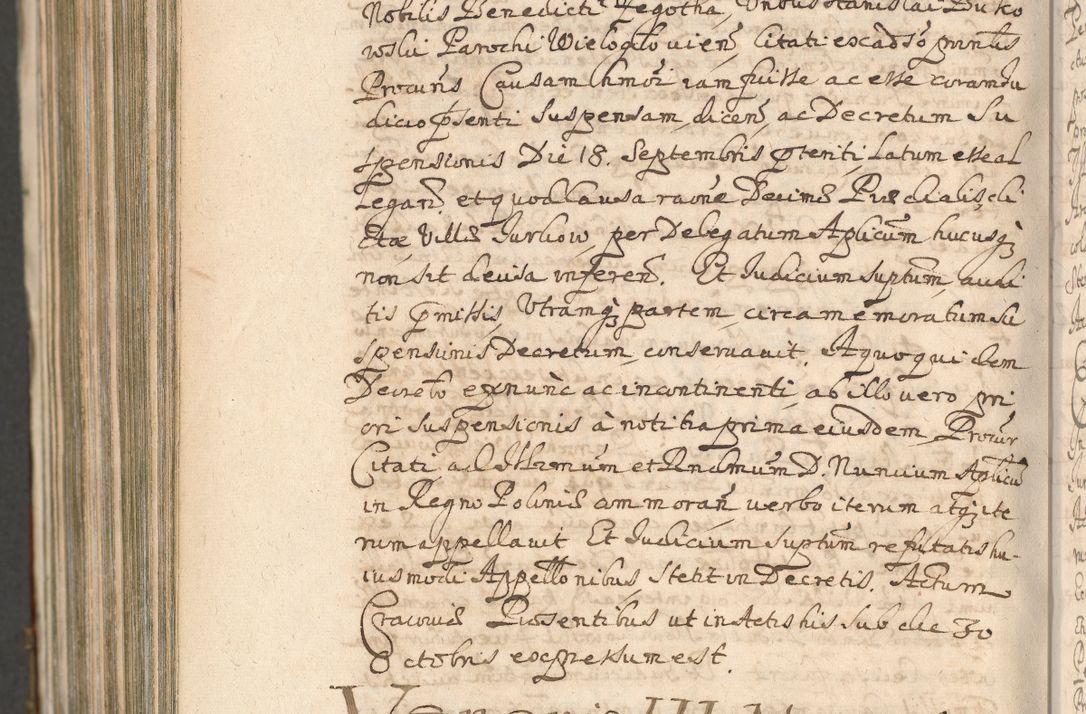 Nobilis Benedicti Zegotha, Vnbus Stanislai Buko
wski Parochi Wielogłovien̄ Citati ex adso pnntis
Procuris Causam hmoi iam fuisse ac esse coram Iu
dicio p̄senti suspensam, dicen̄ ac Decretum Su
spensionis Die 18. Septembris p̄teriti Latum esse al
legan̄. et quod Causa raōne Decimæ Prædialis, di
ctæ Villæ Jurkow, per Delegatum Aplicum hucusq̄
non sit decisa inferen̄. Et Iudicium suptum, audi
tis p̄missis, Utramq̄ partem, circa memoratum Su
spensionis Decretum conservavit. A quo quidem
Decreto ex nunc ac incontinenti, ab illo vero pri
ori suspensionis à notitia prima eiusdem, Procur
Citati ad Illrmum et Rndmum D. Nuncium Aplicu
in Regno Poloniæ commoran̄ verbo iterum atq̄ ite
rum appellavit Et Iudicium suptum refutatis hu-
iusmodi Appellōnibus, stetit in Decretis. Actum
Cracoviæ Præsentibus ut in Actis his sub die 30
8ctobris expressum est.